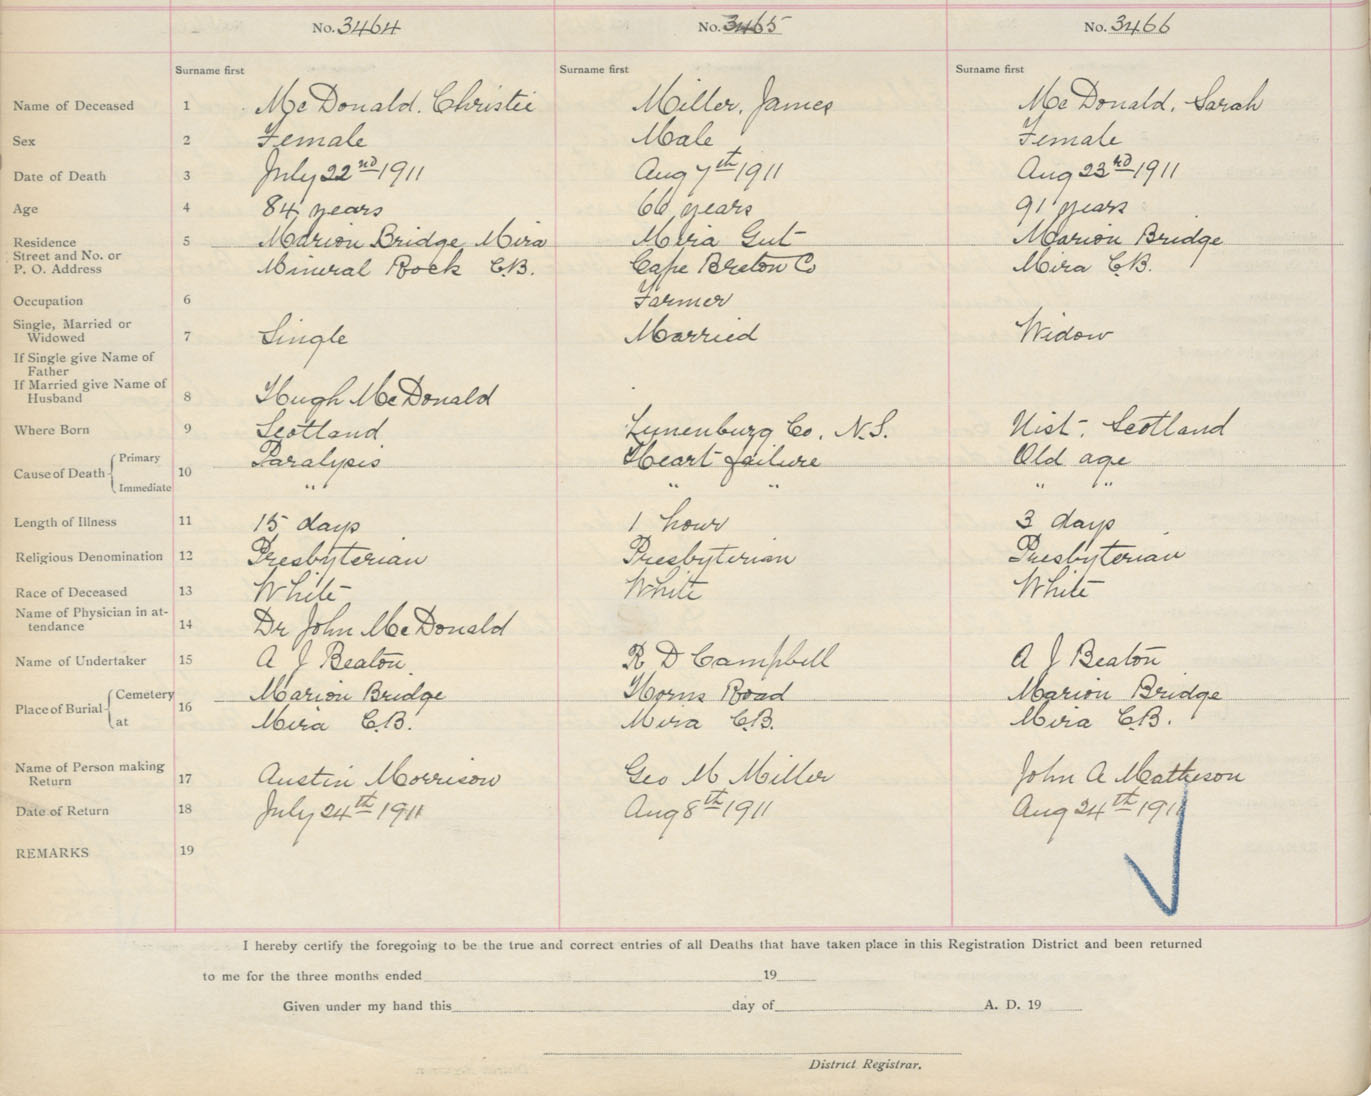 No. 3464 No. 3465 No. 3466
Surname first Surname first Surname first
Name of Deceased 1 McDonald. Christie Miller, James McDonald, Sarah
Sex 2 Female Male Female
Date of Death 3 July 22nd 1911 Aug 7th 1911 Aug 23rd 1911
Age 4 84 years 66 years 91 years
Residence 5 Marion Bridge Mira Mira Gut Marion Bridge
Street and No. or
P. O. Address Mineral Rock C.B. Cape Breton Co Mira C.B.
Occupation 6 Farmer
Single, Married or
Widowed 7 Single Married Widow
If Single give Name of
Father
If Married give Name of
Husband 8 Hugh McDonald
Where Born 9 Scotland Lunenburg Co, N.S. Uist, Scotland
Cause of Death Primary 10 Paralysis Heart failure Old age
Immediate " " " " "
Length of Illness 11 15 days 1 hour 3 days
Religious Denomination 12 Presbyterian Presbyterian Presbyterian
Race of Deceased 13 White White White
Name of Physician in at-
tendance 14 Dr John McDonald
Name of Undertaker 15 A J Beaton R D Campbell A J Beaton
Place of Burial Cemetery 16 Marion Bridge Horns Road Marion Bridge
at Mira C.B. Mira C.B. Mira C.B.
Name of Person making
Return 17 Austin Morrison Geo M Miller John A Matheson
Date of Return 18 July 24th 1911 Aug 8th 1911 Aug 24th 1911
REMARKS 19
I hereby certify the foregoing to be the true and correct entries of all Deaths that have taken place in this Registration District and been returned
to me for the three months ended 19
Given under my hand this day of A. D. 19
District Registrar.